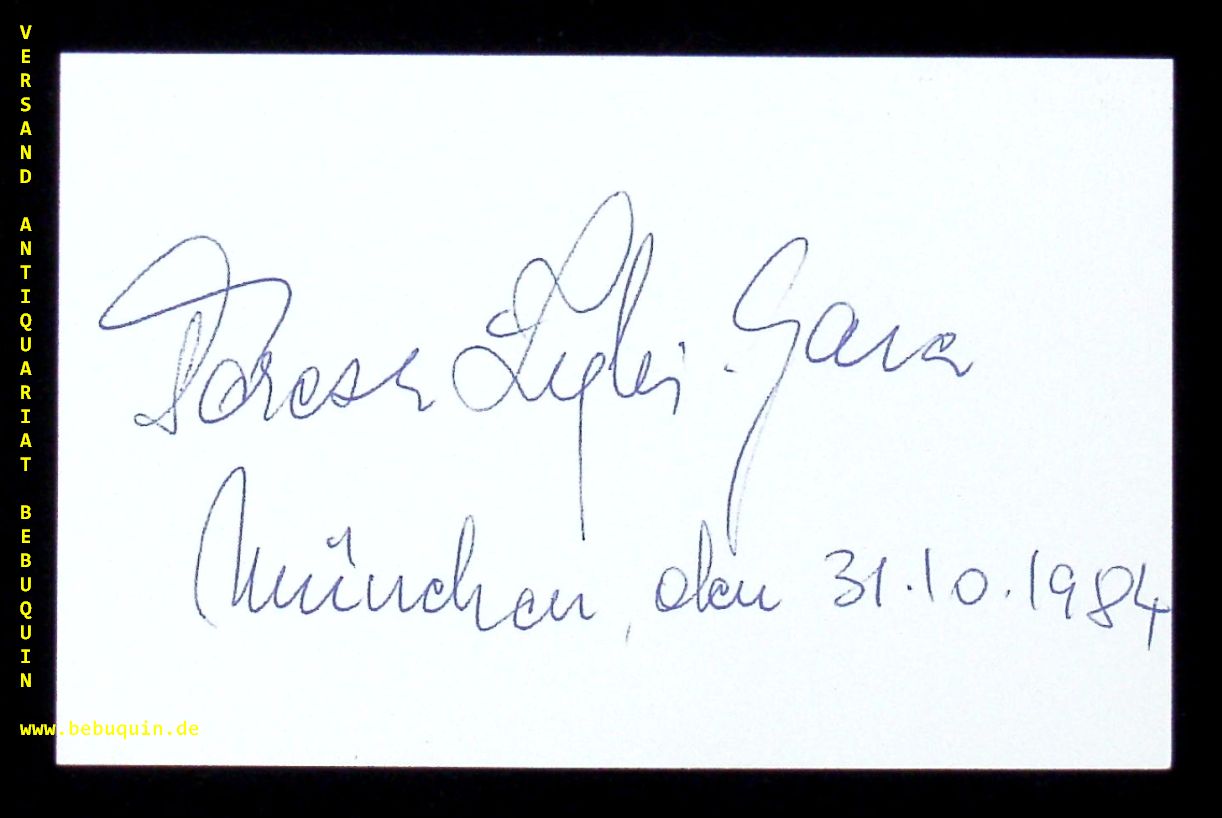 VERSAND ANTIQUARIAT BEBUQUIN
Teresa Zylis-Gara
München, den 31.10.1984
www.bebuquin.de